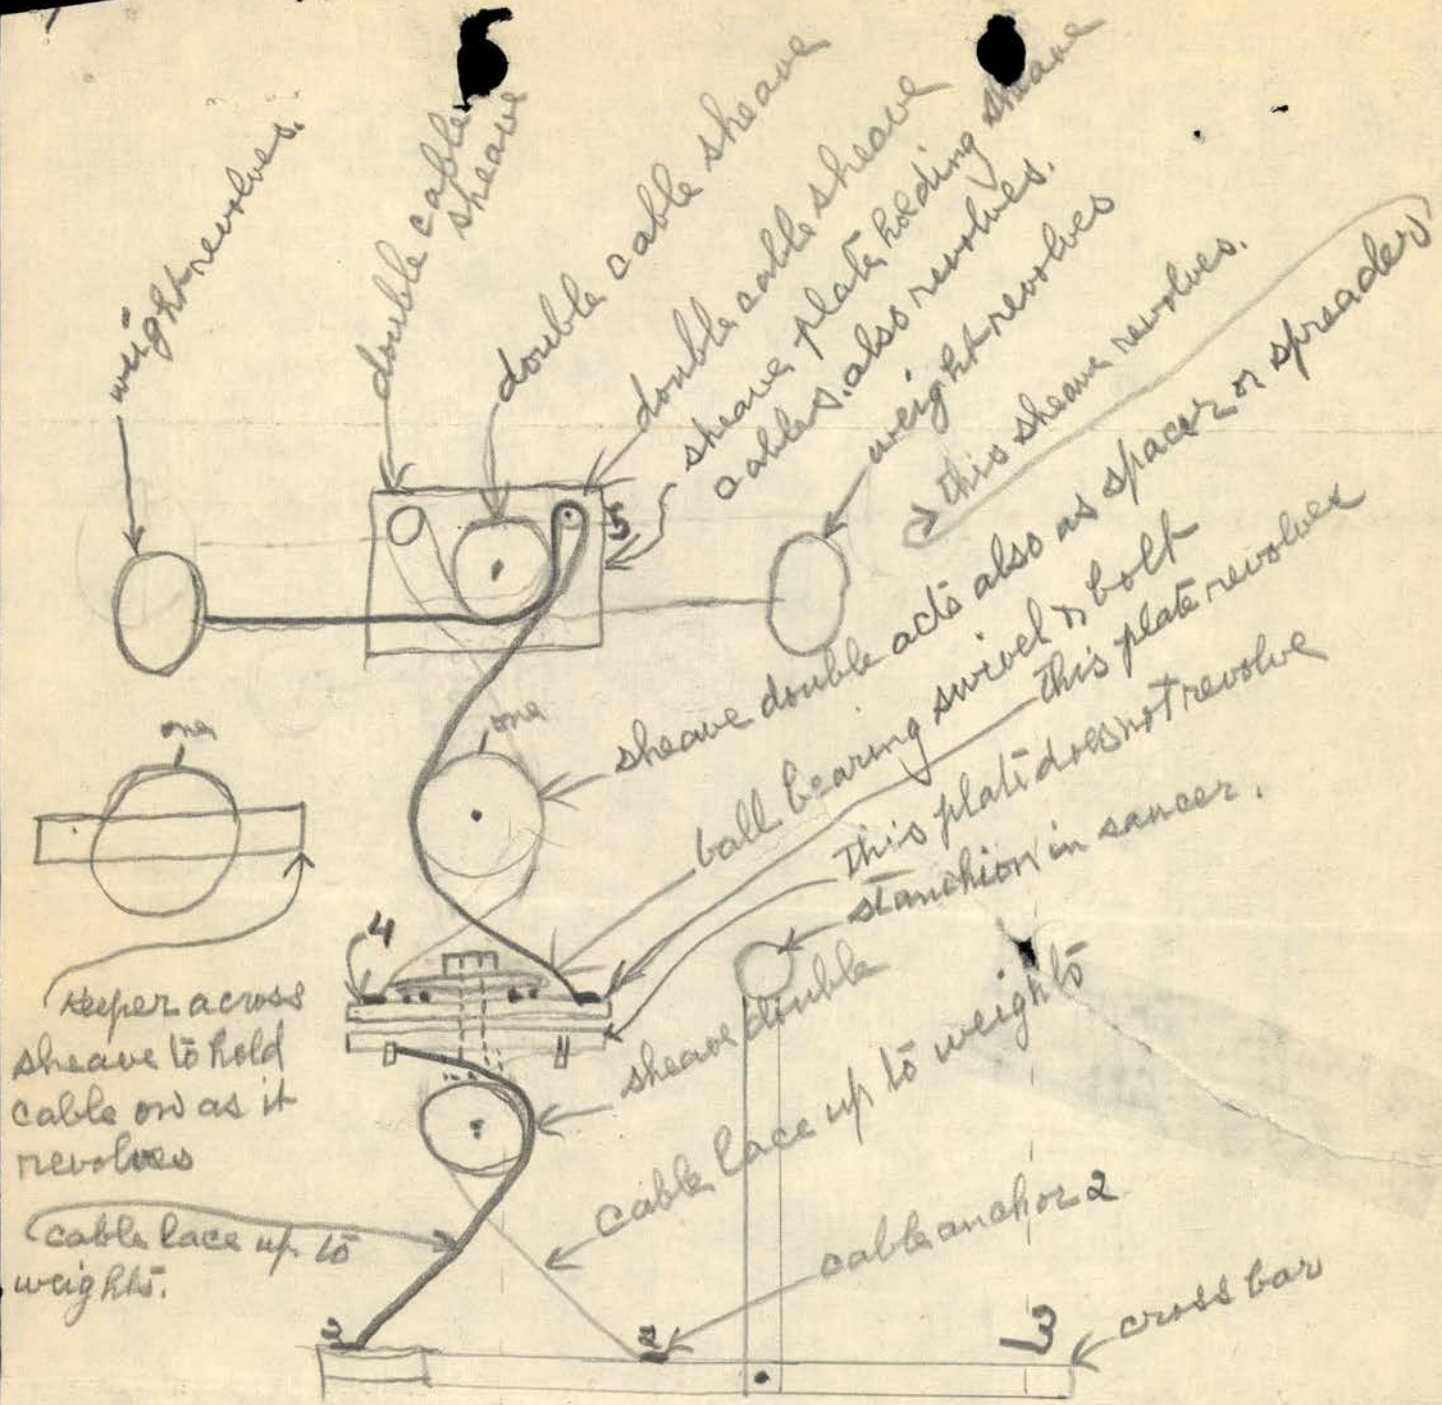 weight revolves.
double cable
sheave
double cable sheave
double cable sheave
sheave plate holding sheave
cables. also revolves.
weight revolves
this sheave revolves.
5
sheave double acts also as spacer or spreader
one
one
ball bearing swivel & bolt
this plate revolves
this plate does not revolve
stanchion in saucer.
4
keeper across
sheave to hold
cable on as it
revolves
sheave double
cable lace up to weights
cable lace up to
weights.
cable anchor 2
2
2
3
cross bar